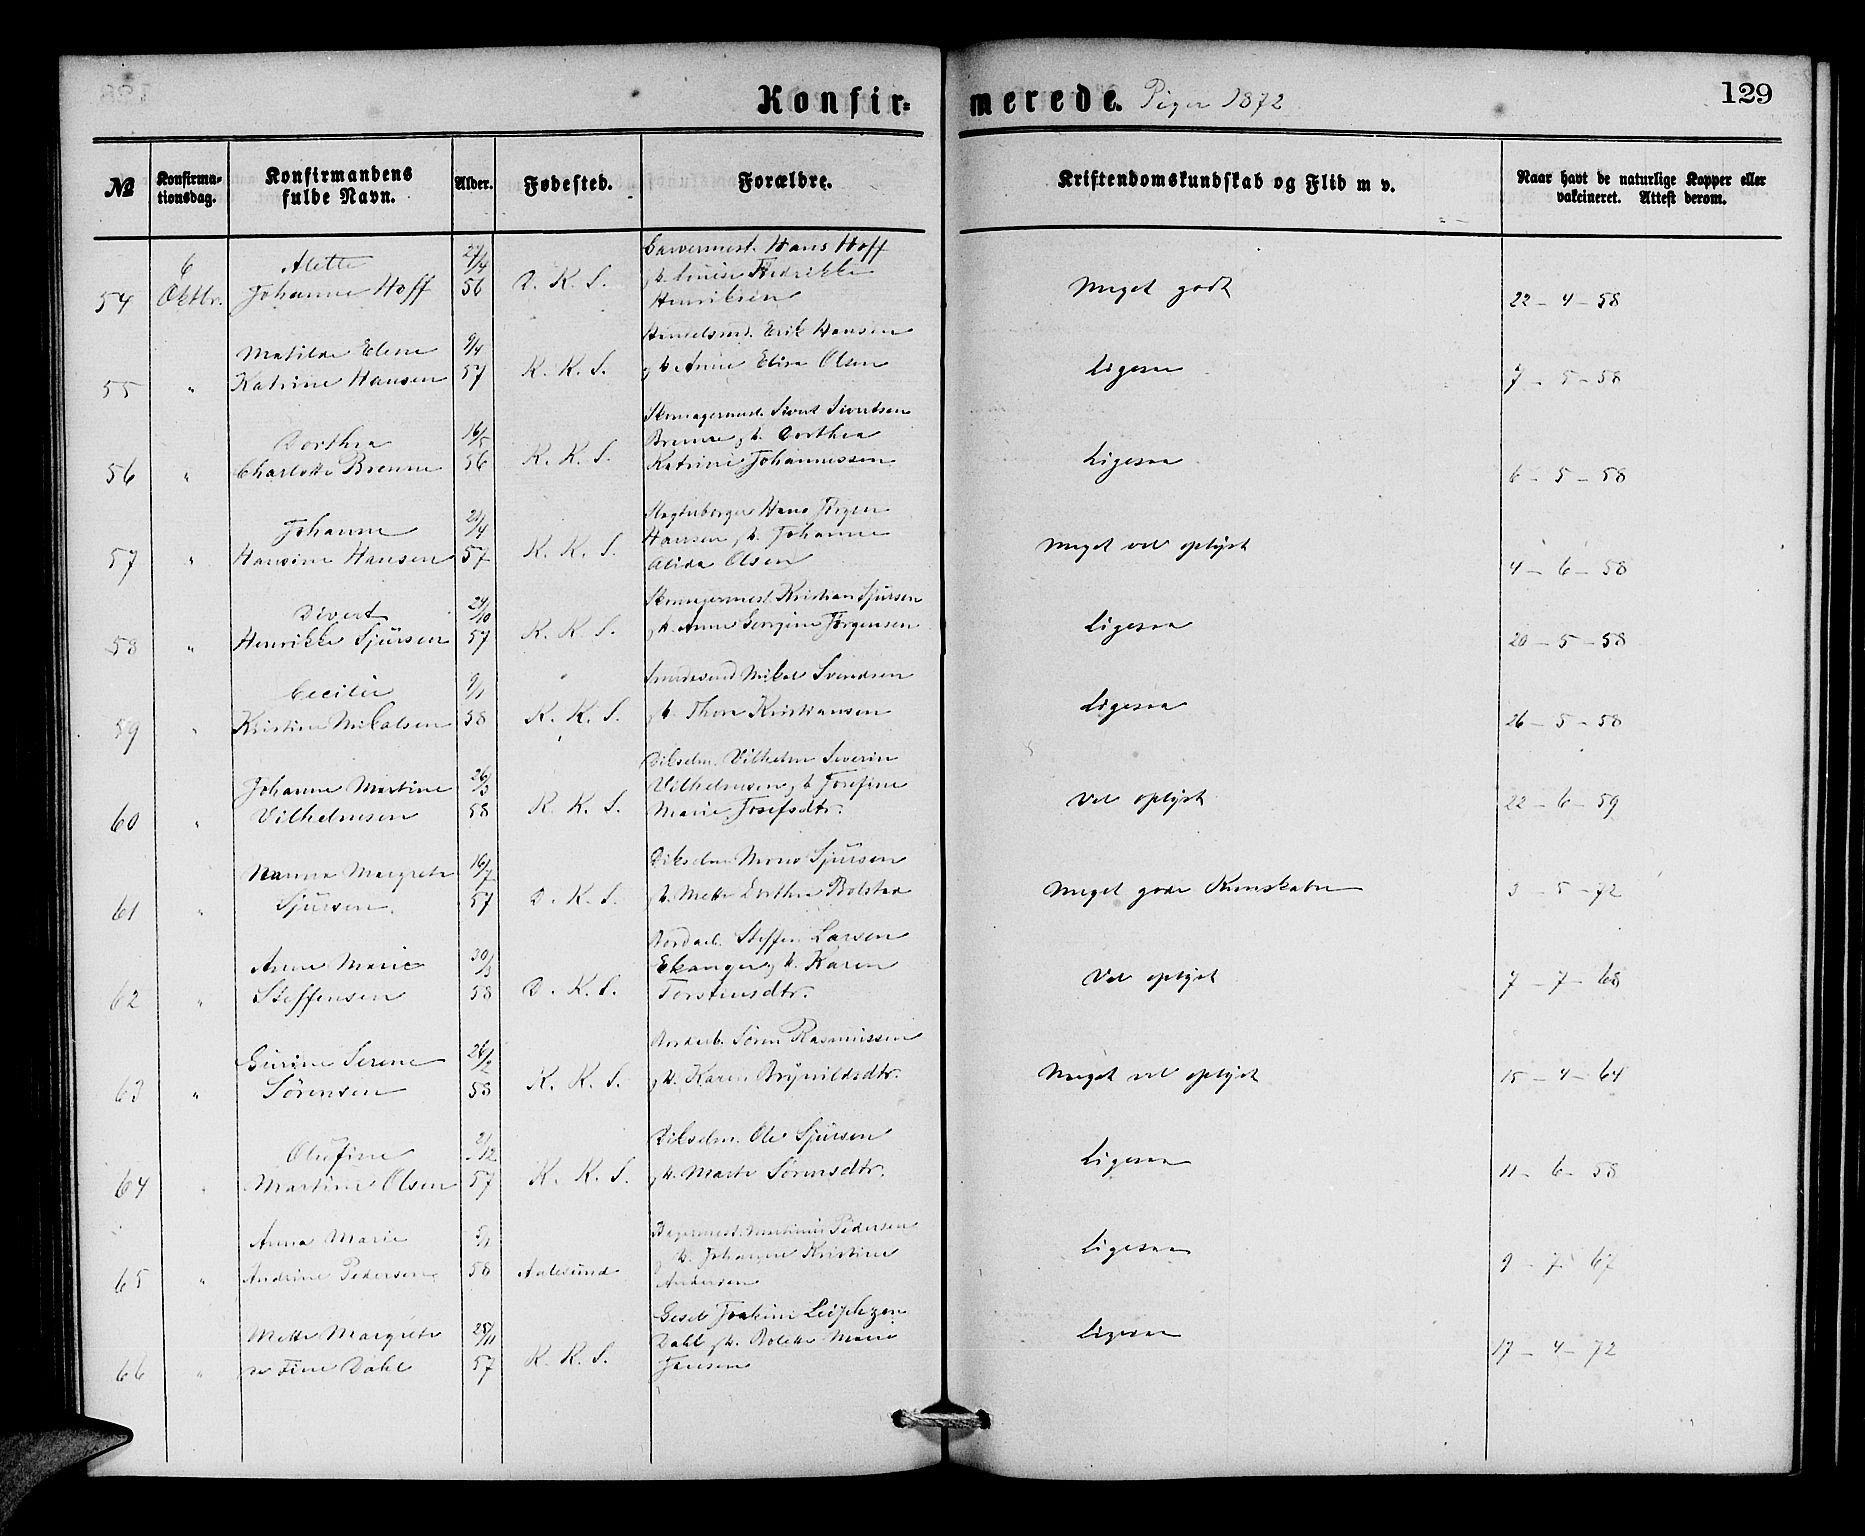 Konfir=
merede. Piger 1872
129
№
Konfirma-
tionsdag.
Konfirmandens
fulde Navn.
Alder.
Fødested.
Forældre.
Kristendomskundskab og Flid m v.
Naar havt de naturlige Kopper eller
vakcineret. Attest derom.
54
6
Oktbr.
Alette
Johanne Hoff
27/4
56
D. K. S.
Garvermest. Hans Hoff
Louise Fredrikke
Henriksen
Meget godt
22 - 4 - 58
55
"
Matilde Elene
Katrine Hansen
9/4
57
K. K. S.
Handelsmd. Erik Hansen
Anne Elisa Olsen
Ligesaa
7 - 5 - 58
56
"
Dorthea
Charlotte Brenne
16/5
56
K. K. S.
Skomagermest. Sivert Sivertsen
Brenne Dorthea
Katrine Johannessen
Ligesaa
6 - 5 - 58
57
"
Johanne
Hansine Hansen
21/4
57
K. K. S.
Hans Jørgen
Hansen Johanne
Alida Olsen
Meget vel oplyst
4 - 6 - 58
58
"
Sivert
Henrikke Sjursen
24/10
57
K. K. S.
Skomagermest. Kristian Sjursen
Anne Jørgensen
Ligesaa
20 - 5 - 58
59
"
Cecilie
Kristine Mikalsen
9/1
58
K. K. S.
Mikal Svendsen
Thora Kristiansen
Ligesaa
26 - 5 - 58
60
"
Johanne Martine
Vilhelmsen
26/3
58
K. K. S.
Vilhelm Severin
Vilhelmsen Josefine
Marie Josefsdtr.
Vel oplyst
22 - 6 - 59
61
"
Nanna Margrete
Sjursen
16/7
57
D. K. S.
Mons Sjursen
Mette Dorthea Bolstad
Meget gode Kunskaber
3 - 5 - 72
62
"
Anne Marie
Steffensen
30/3
58
D. K. S.
Steffen Larsen
Ekanger Karen
Torstensdtr.
Vel oplyst
7 - 7 - 68
63
"
Serene
Sørensen
26/2
58
K. K. S.
Søren Rasmussen
Karen Brynildsdtr.
Meget vel oplyst
15 - 4 - 64
64
"
Olufine
Martine Olsen
2/12
57
K. K. S.
Ole Sjursen
Marte Sørensdtr.
Ligesaa
11 - 6 - 58
65
"
Anna Marie
Andrine Pedersen
5/1
58
Aalesund
Martinus Pedersen
Johanne Kristine
Andersen
Ligesaa
9 - 7 - 67
66
"
Mette Margrete
Dahl
25/11
57
K. K. S.
Joakim
Dahl Bolette Marie
Jansen
Ligesaa
17 - 4 - 72